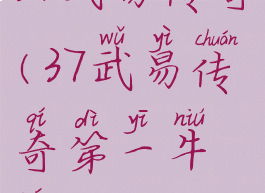 wǔ yì chuán
(37武易传
qí dì yī niú
奇第一牛